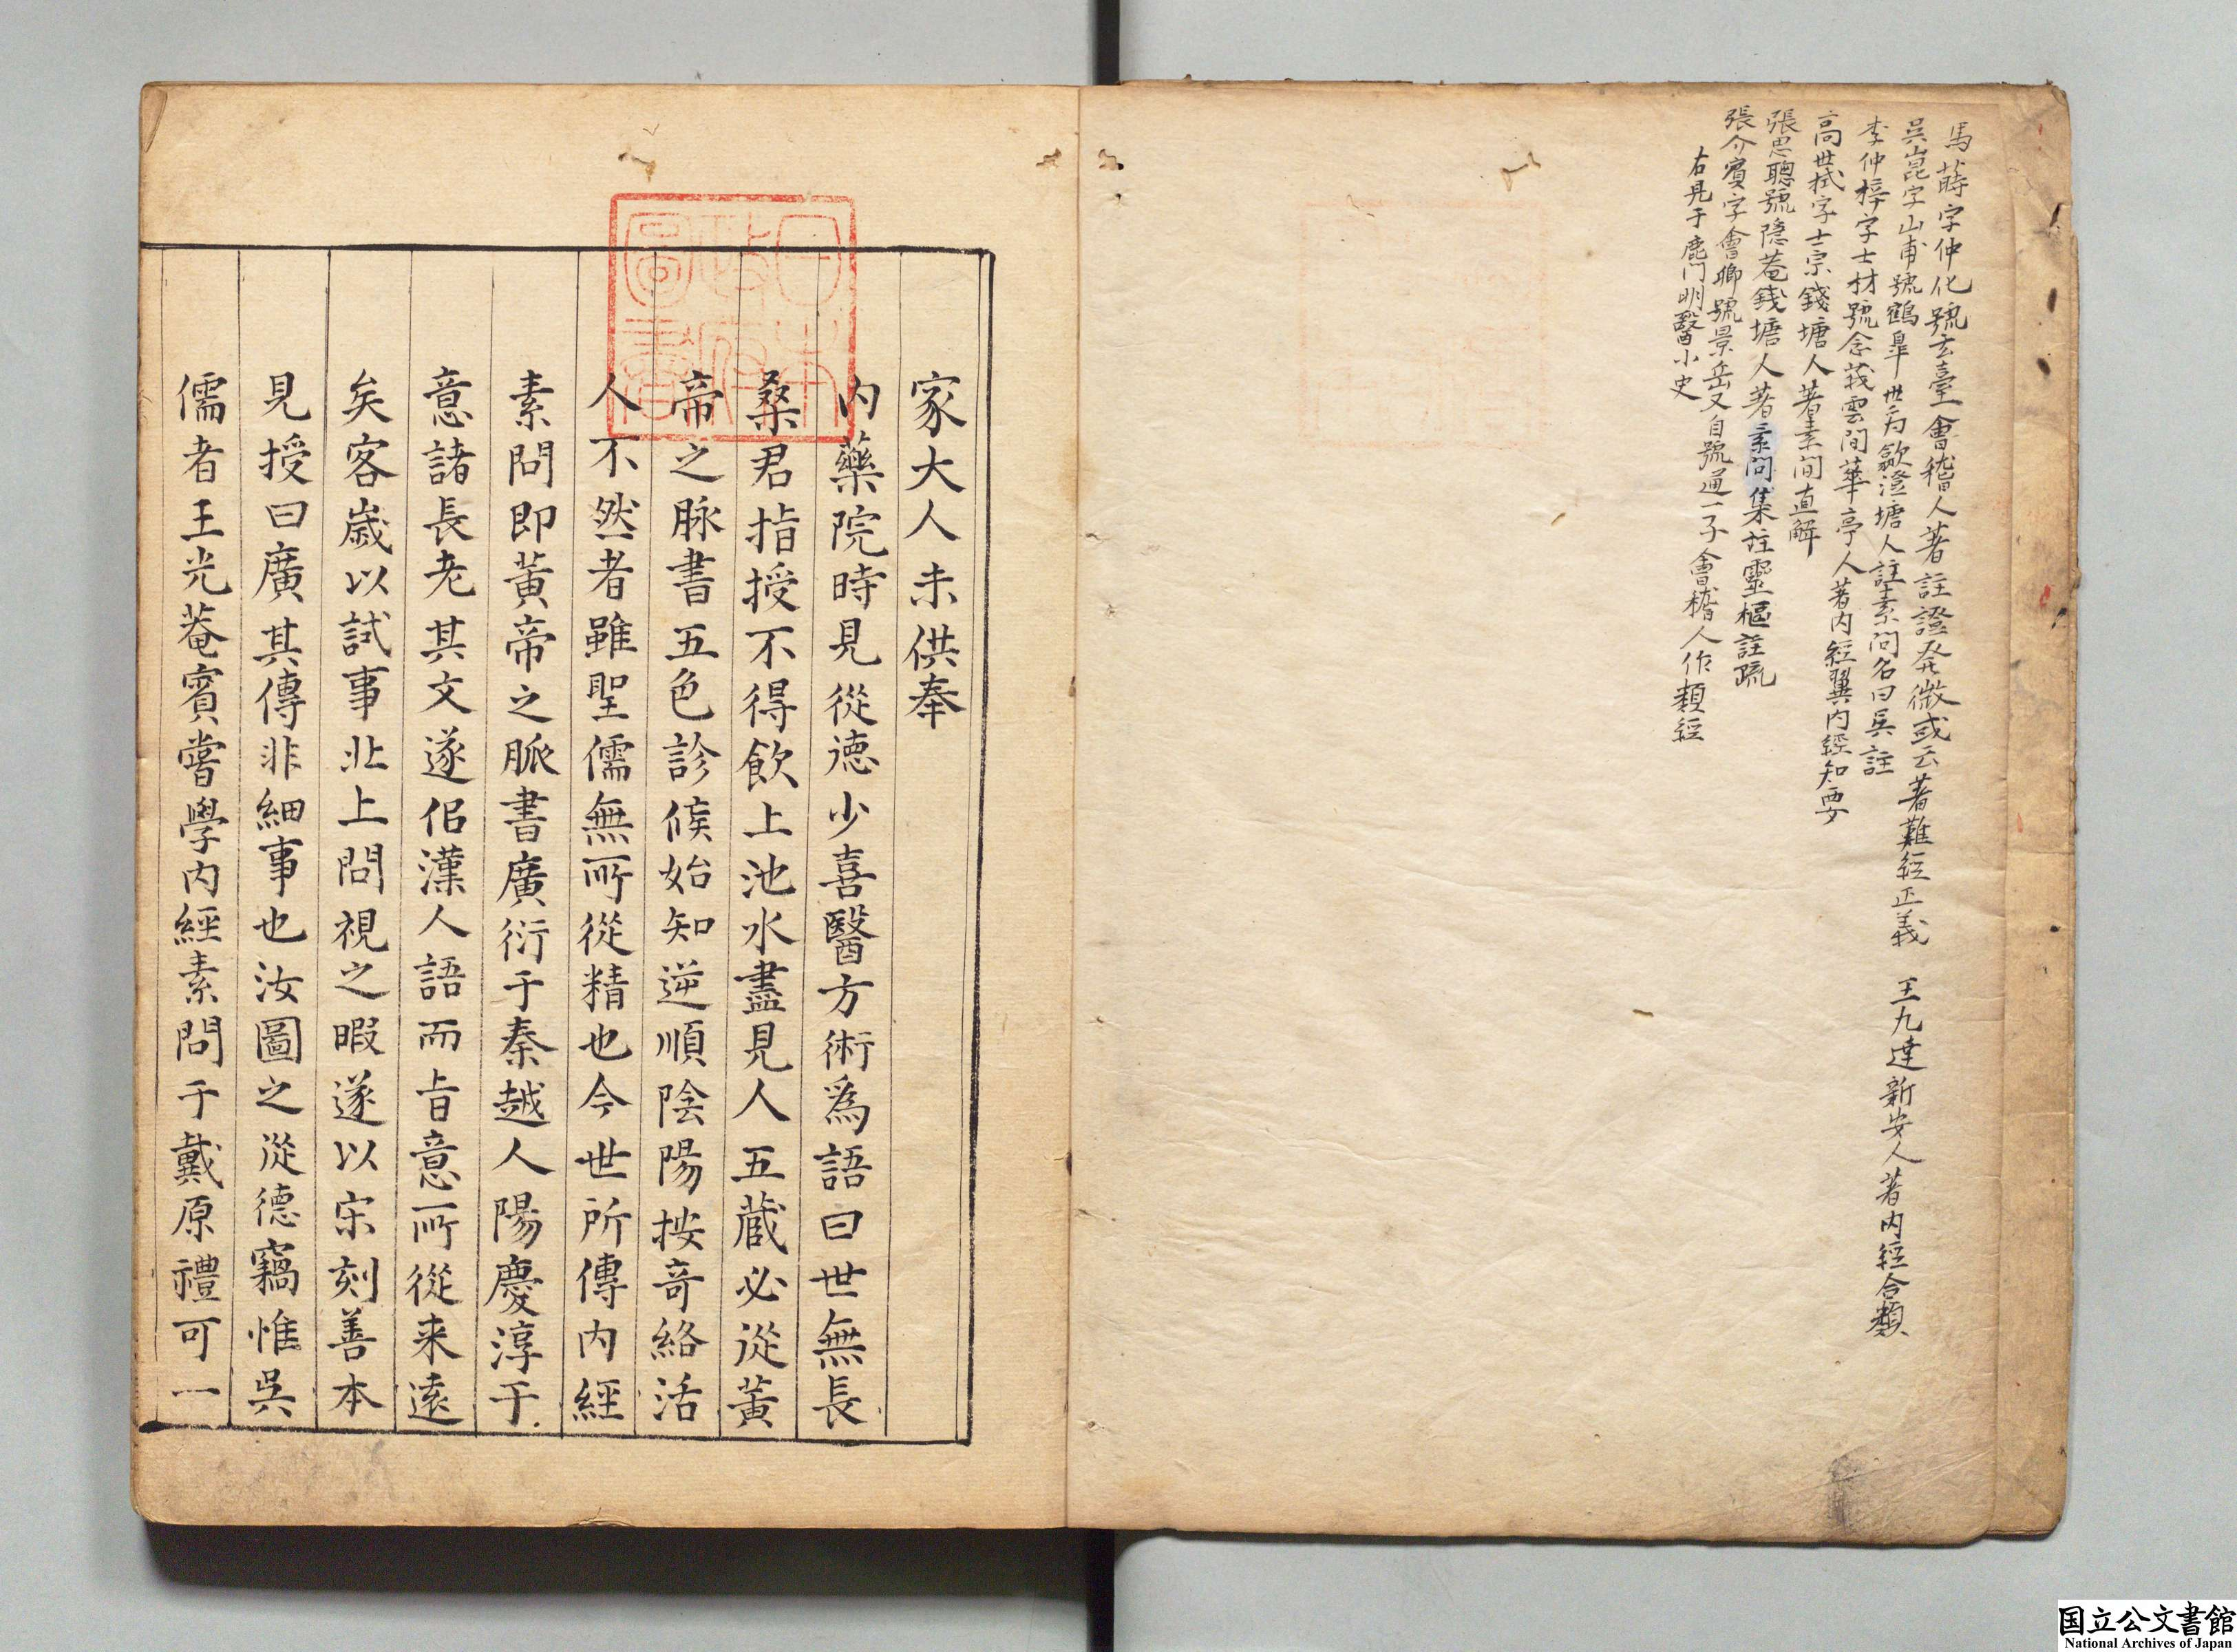 馬蒔字仲化號玄臺會稽人著註證發微或云著難經正義　王九達新安人著内經合類
吳崑字山甫號鶴皐世为歙澄塘人註素问名曰吳註
李仲梓字士材號念莪雲間華亭人著内經翼内經知要
高世栻字士宗錢塘人著素問直解
張思聰號隐菴錢塘人著素问集註靈樞註疏
張介賓字會卿號景岳又自號通一子會稽人作類經
右見于鹿门明醫小史
家大人未供奉
内藥院時見從德少喜醫方術爲語曰世無長
桑君指授不得飲上池水盡見人五藏必從黃
帝之脉書五色診候始知逆順陰陽按奇絡活
人不然者雖聖儒無所從精也今世所傳内經
素問即黃帝之脈書廣衍于秦越人陽慶淳于
意諸長老其文遂佀漢人語而旨意所從来遠
矣客歲以試事北上問視之暇遂以宋刻善本
見授曰廣其傳非細事也汝圖之從德竊惟吳
儒者王光菴賓嘗學内經素問于戴原禮可一
日本政府圖書
国立公文書館
National Archives of Japan